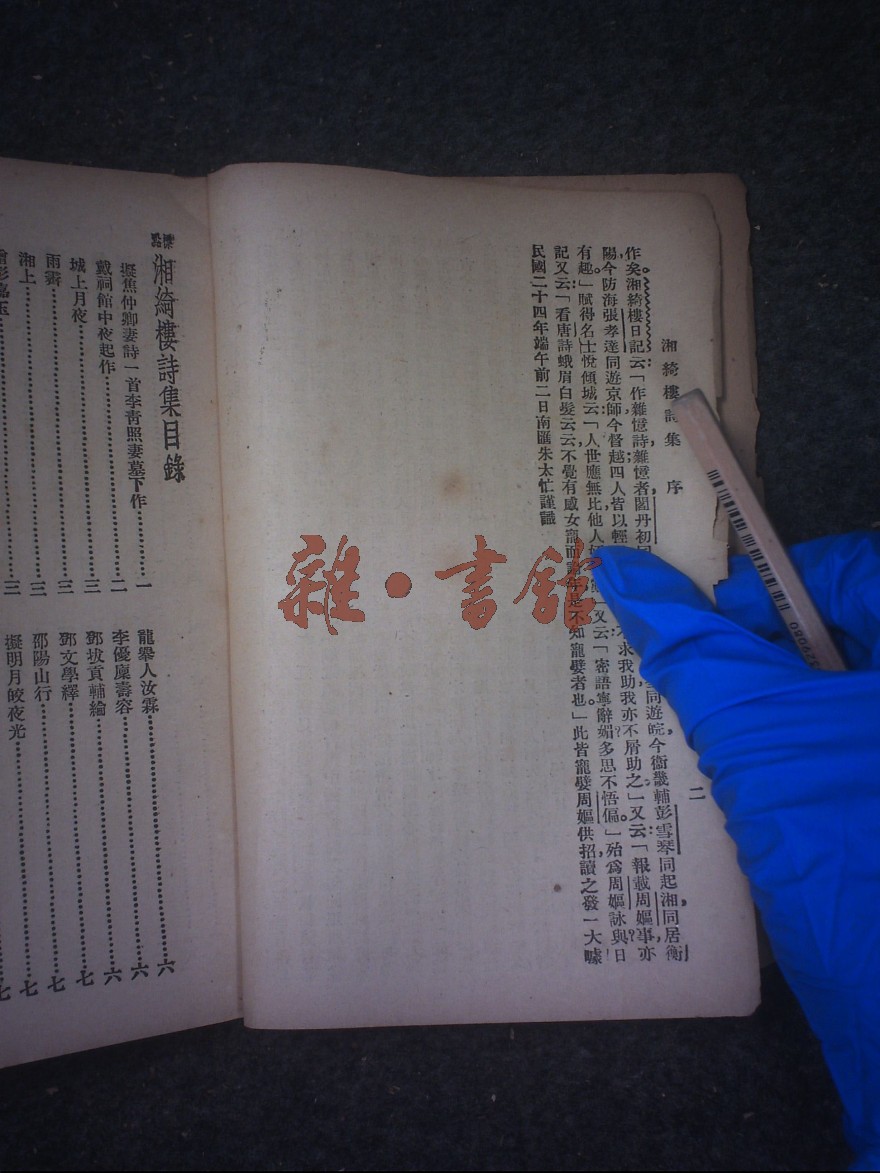 湘綺樓詩集 序 二
作矣。湘綺樓日記云：「作雜憶詩，雜憶者閻丹初同遊皖，今衞畿輔，彭雪琴同起湘，同居衡
陽，今防海，張孝達同遊京師，今督越，四人皆以輕求我助，我亦不屑助之」又云：「報載周嫗事，亦
有趣。」賦得名士悅傾城云：「人世應無比，他人」又云：「密語寧辭媚，多思不悟偏。」殆爲周嫗詠與？日
記又云：「看唐詩蛾眉白髮云云，不覺有感，女寵而是不知寵嬖者也。」此皆寵嬖周嫗供招，讀之發一大噱
民國二十四年端午前二日南匯朱太忙謹識
標點 湘綺樓詩集目錄
擬焦仲卿妻詩一首李青照妻墓下作……一
戴祠館中夜起作……二
城上月夜……三
雨霽……三
湘上……三
曾彭嘉玉……三
龍舉人汝霖……六
李優廩壽容……六
鄧拔貢輔綸……六
鄧文學繹……七
邵陽山行……七
擬明月皎夜光……七
七
雜·書館
329080